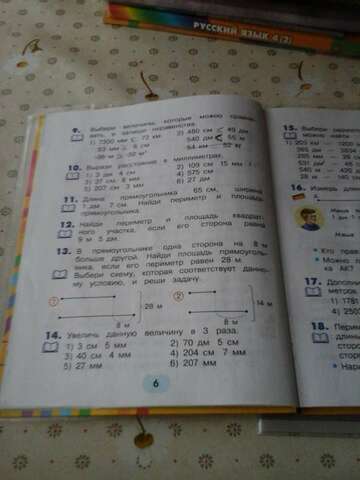 РУССКИЙ ЯЗЫК 4 (2)
9. Выбери величины, которые можно сравни-
вать, и запиши неравенства.
1) 7300 м < 72 км 2) 480 см < 49 дм
83 мм > 8 см 540 дм < 55 м
10. Вырази расстояния в миллиметрах.
1) 3 дм 4 см 2) 109 см 15 мм
3) 37 см 8 мм 4) 575 см
5) 207 см 3 мм 6) 27 дм
11. Длина прямоугольника 65 см, ширина
1 дм 7 см. Найди периметр и площадь
прямоугольника.
12. Найди периметр и площадь квадрат-
ного участка, если его сторона равна
9 м 5 дм.
13. В прямоугольнике одна сторона на 8 м
больше другой. Найди площадь прямоуголь-
ника, если его периметр равен 28 м.
Выбери схему, которая соответствует данно-
му условию, и реши задачу.
1 28 м 2 14 м
8 м 8 м
14. Увеличь данную величину в 3 раза.
1) 3 см 5 мм 2) 70 дм 5 см
3) 40 см 4 мм 4) 204 см 7 мм
5) 27 мм 6) 207 мм
6
15. Выбери
можно найти
16. Измерь длин
Маша
Маша
• Кто прав
• Можно ли
ка АК?
17. Дополни
метров.
1) 178
4) 250
18. Перим
длины
сторо
сторо